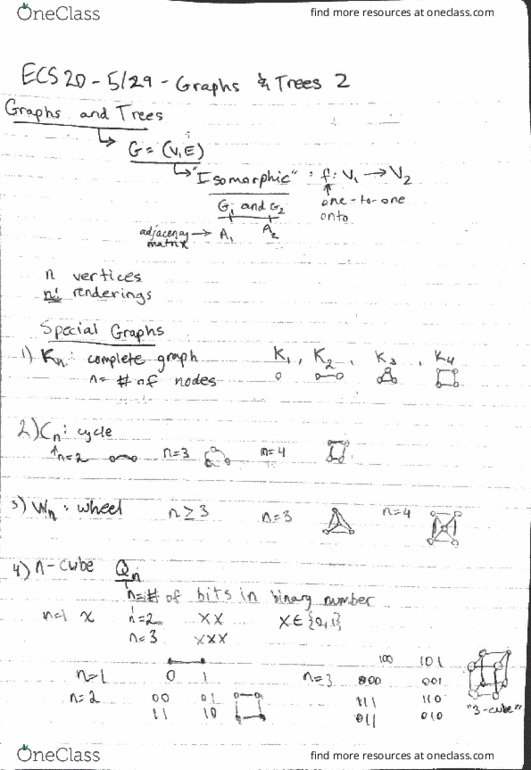 OneClass
find more resources at oneclass.com
ECS20 - 5/29 - Graphs & Trees 2
Graphs and Trees
G = (V, E)
"Isomorphic" : f: V₁ → V₂
G₁ and G₂
one-to-one
onto
adjacency matrix → A₁ A₂
n vertices
n! renderings
Special Graphs
1) Kn: complete graph K₁, K₂, K₃, K₄
n = # of nodes
2) Cn: cycle
n=2 n=3 n=4
3) Wn: wheel n ≥ 3 n=3 n=4
4) n-cube Qn
n=# of bits in binary number
n=1 x n=2 xx x∈{0,1}
n=3 xxx
100 101
n=1 0 1 n=3 000 001
n=2 00 01 111 110
11 10 011 010 "3-cube"
OneClass
find more resources at oneclass.com